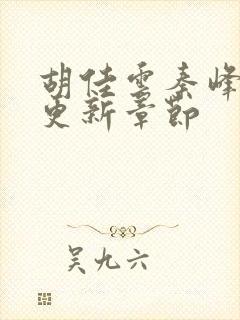 胡佳雪秦峰
更新章节
吴九六